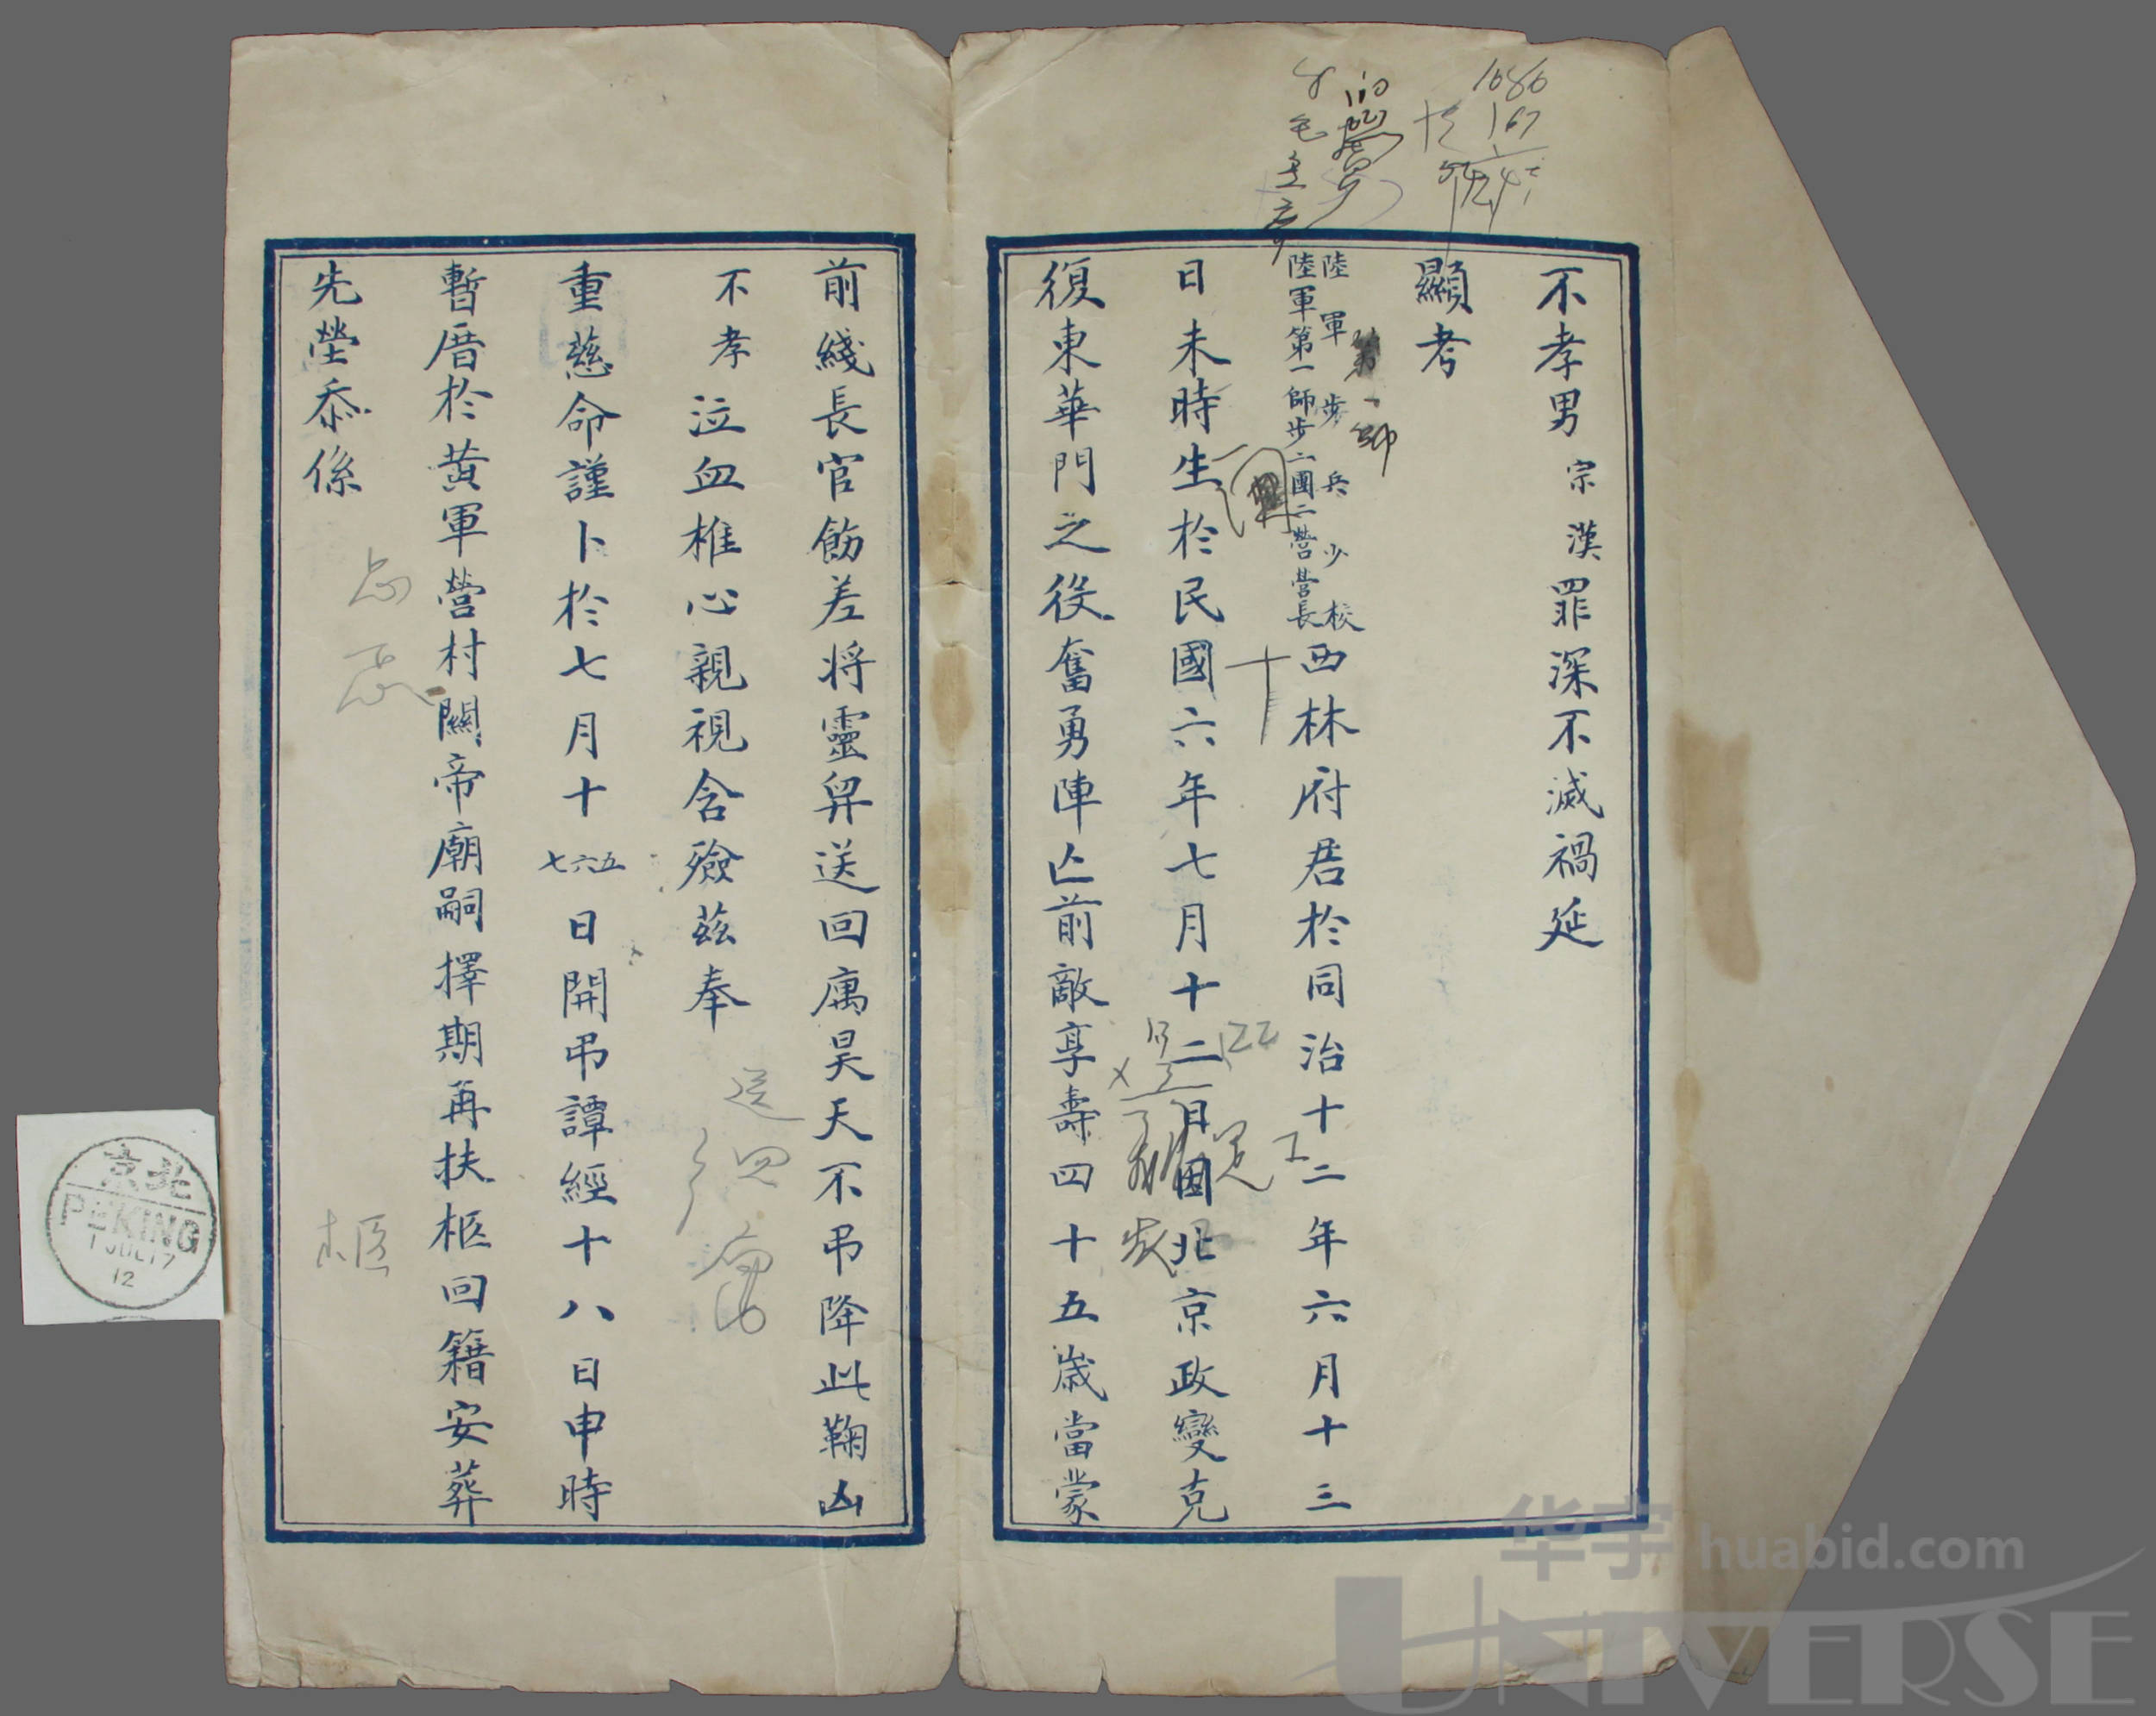 不孝男宗漢罪深不滅禍延
顯考
陸軍步兵少校
陸軍第一師步二團二營營長
西林府君於同治十二年六月十三
日未時生於民國六年七月十二日因北京政變克
復東華門之役奮勇陣亡前敵享壽四十五歲當蒙
前綫長官飭差将靈舁送回寓昊天不弔降此鞠凶
不孝泣血椎心親視含殮茲奉
重慈命謹卜於七月十五六七日開弔譚經十八日申時
暫厝於黄軍營村關帝廟嗣擇期再扶柩回籍安葬
先塋忝係
第一師
1686
167
送
四
柩
北京
PEKING
1 JUL 17
12
华宇 huabid.com
UNIVERSE